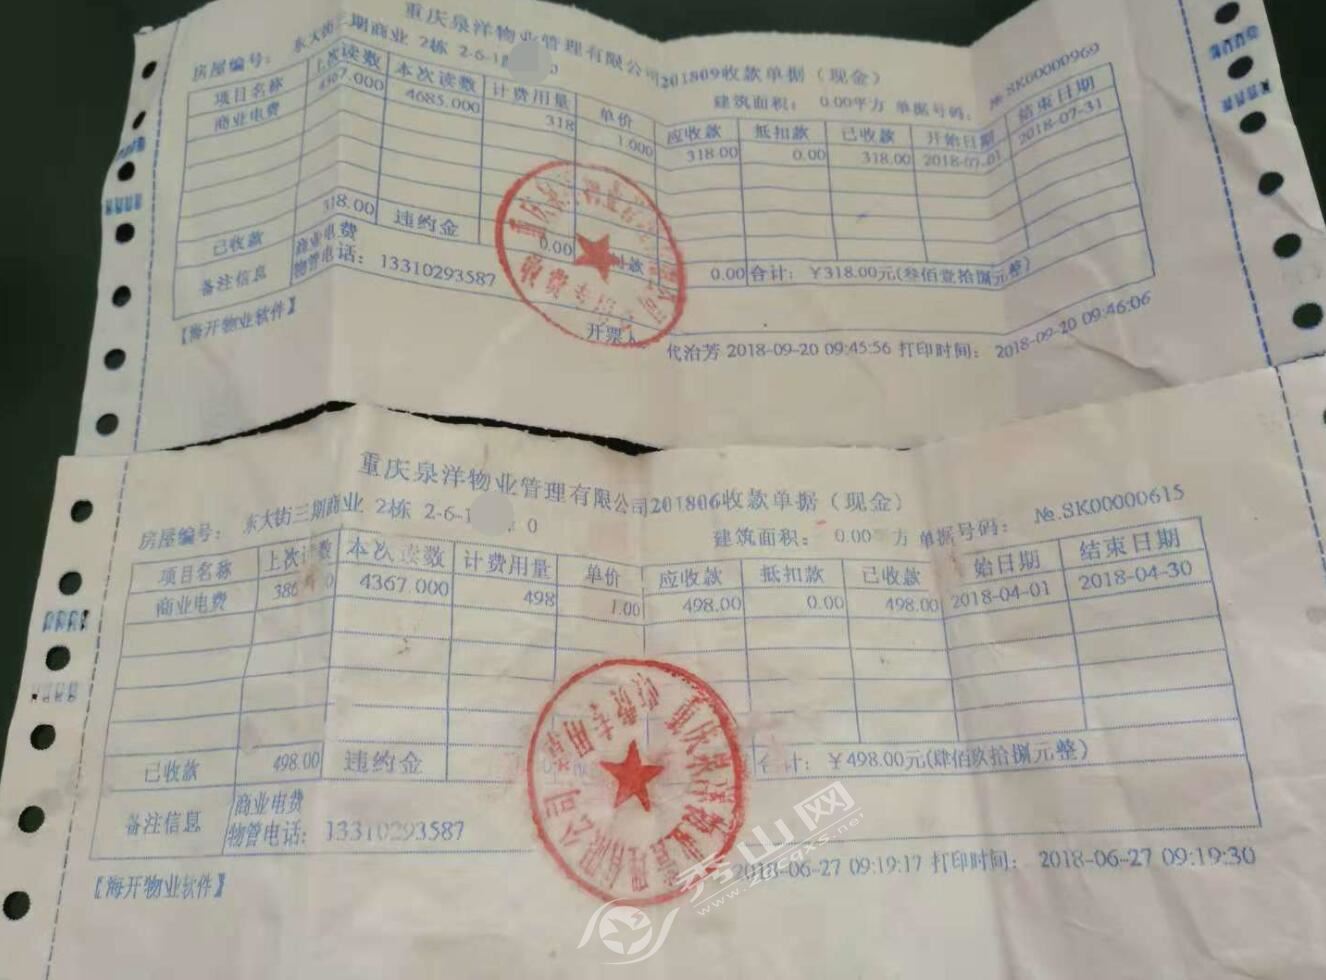 重庆泉洋物业管理有限公司201809收款单据（现金）
房屋编号： 东大街三期商业 2栋 2-6-1 0 建筑面积： 0.00平方 单据号码： №.SK00000969
项目名称 上次读数 本次读数 计费用量 单价 应收款 抵扣款 已收款 开始日期 结束日期
商业电费 4367.000 4685.000 318 1.000 318.00 0.00 318.00 2018-07-01 2018-07-31
已收款 318.00 违约金 0.00 0.00 合计： ￥318.00元(叁佰壹拾捌元整)
备注信息 商业电费
物管电话：13310293587
【海开物业软件】 开票人 代治芳 2018-09-20 09:45:56 打印时间： 2018-09-20 09:46:06
重庆泉洋物业管理有限公司201806收款单据（现金）
房屋编号： 东大街三期商业 2栋 2-6-1 0 建筑面积： 0.00 方 单据号码： №.SK00000615
项目名称 上次 数 本次读数 计费用量 单价 应收款 抵扣款 已收款 始日期 结束日期
商业电费 4367.000 498 1.00 498.00 0.00 498.00 2018-04-01 2018-04-30
已收款 498.00 违约金 合计： ￥498.00元(肆佰玖拾捌元整)
备注信息 商业电费
物管电话： 13310293587
【海开物业软件】 2018-06-27 09:19:17 打印时间： 2018-06-27 09:19:30
重庆泉洋物业管理有限公司
收费专用章
秀山网
www.zgcqxs.net